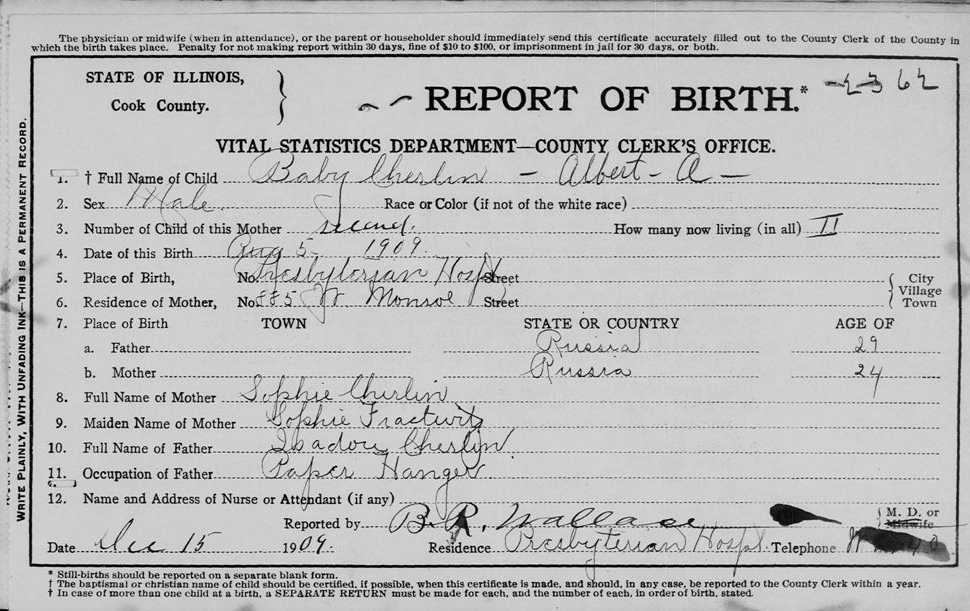 The physician or midwife (when in attendance), or the parent or householder should immediately send this certificate accurately filled out to the County Clerk of the County in
which the birth takes place. Penalty for not making report within 30 days, fine of $10 to $100, or imprisonment in jail for 30 days, or both.
STATE OF ILLINOIS,
Cook County.
REPORT OF BIRTH.*
VITAL STATISTICS DEPARTMENT—COUNTY CLERK'S OFFICE.
1. † Full Name of Child Baby Cherlin - Albert - A -
2. Sex Male Race or Color (if not of the white race)
3. Number of Child of this Mother second. How many now living (in all) II
4. Date of this Birth Aug 5 1909.
5. Place of Birth, No. Presbyterian Hospl Street City
Village
Town
6. Residence of Mother, No. W Monroe Street
7. Place of Birth TOWN STATE OR COUNTRY AGE OF
a. Father Russia 29
b. Mother Russia 24
8. Full Name of Mother Sophie Cherlin
9. Maiden Name of Mother Sophie
10. Full Name of Father Isadore Cherlin
11. Occupation of Father Paper Hanger
12. Name and Address of Nurse or Attendant (if any)
Reported by B. R. Wallace M. D. or
Midwife
Date Dec 15 1909. Residence Presbyterian Hospl. Telephone
* Still-births should be reported on a separate blank form.
† The baptismal or christian name of child should be certified, if possible, when this certificate is made, and should, in any case, be reported to the County Clerk within a year.
† In case of more than one child at a birth, a SEPARATE RETURN must be made for each, and the number of each, in order of birth, stated.
WRITE PLAINLY, WITH UNFADING INK—THIS IS A PERMANENT RECORD.